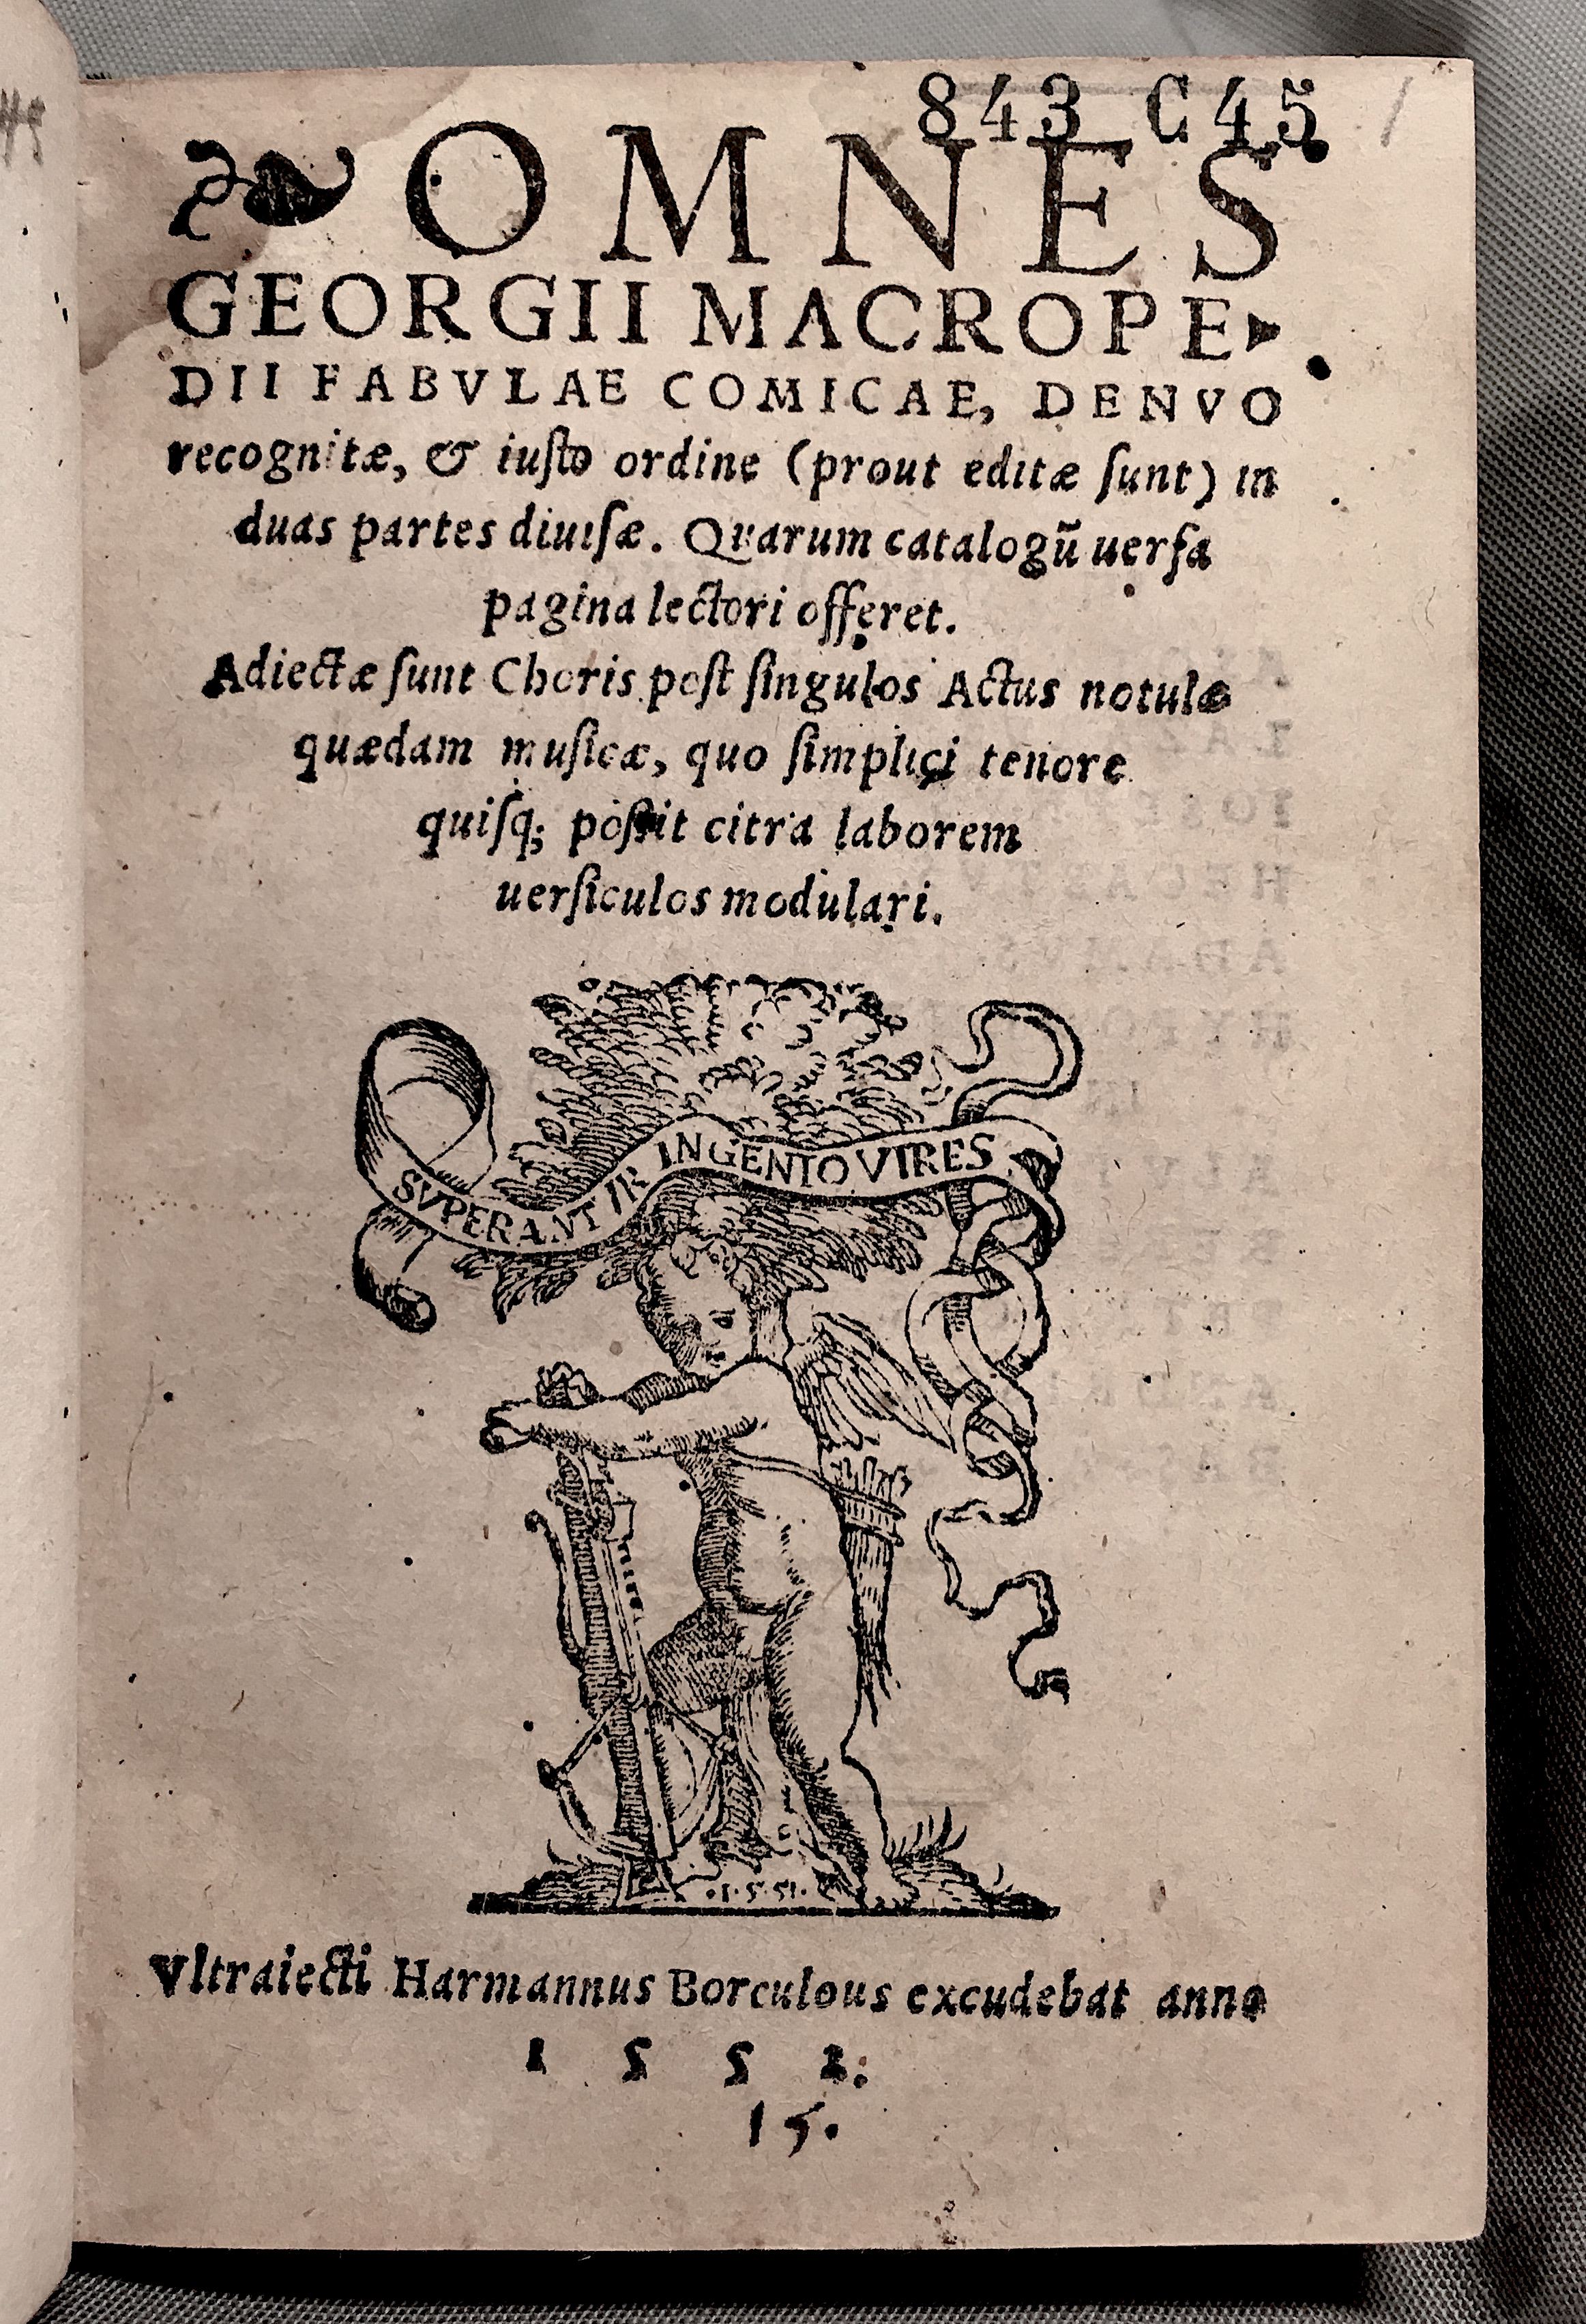 843 C45
OMNES
GEORGII MACROPE-
DII FABVLAE COMICAE, DENVO
recognitæ, & iuſto ordine (prout editæ ſunt) in
duas partes diuiſæ. Quarum catalogū uerſa
pagina lectori offeret.
Adiectæ ſunt Choris poſt ſingulos Actus notulæ
quædam muſicæ, quo ſimplici tenore
quiſq; poſſit citra laborem
uerſiculos modulari.
SVPERANTVR INGENIO VIRES
.1.5.51.
Vltraiecti Harmannus Borculous excudebat anno
1 5 5 2.
15.